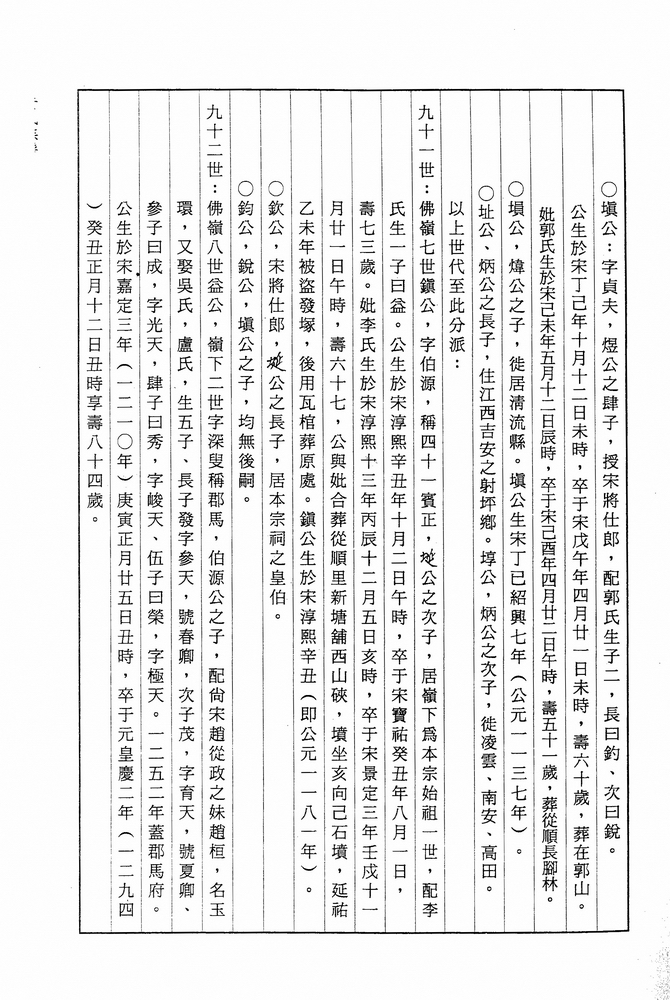 ○塡公：字貞夫，煜公之肆子，授宋將仕郎，配郭氏生子二，長曰釣、次曰銳。
公生於宋丁己年十月十二日未時，卒于宋戊午年四月廿一日未時，壽六十歲，葬在郭山。
妣郭氏生於宋己未年五月十二日辰時，卒于宋己酉年四月廿二日午時，壽五十一歲，葬從順長腳林。
○塤公，煒公之子，徙居清流縣。塡公生宋丁已紹興七年（公元一一三七年）。
○址公、炳公之長子，住江西吉安之射坪鄉。埻公，炳公之次子，徙凌雲、南安、高田。
以上世代至此分派：
九十一世：佛嶺七世鎭公，字伯源，稱四十一賓正，埏公之次子，居嶺下爲本宗始祖一世，配李
氏生一子曰益。公生於宋淳熙辛丑年十月二日午時，卒于宋寶祐癸丑年八月一日，
壽七三歲。妣李氏生於宋淳熙十三年丙辰十二月五日亥時，卒于宋景定三年壬戌十一
月廿一日午時，壽六十七，公與妣合葬從順里新塘舖西山硤，墳坐亥向己石墳，延祐
乙未年被盜發塚，後用瓦棺葬原處。鎭公生於宋淳熙辛丑（即公元一一八一年）。
○欽公，宋將仕郎，埏公之長子，居本宗祠之皇伯。
○鈞公，銳公，塡公之子，均無後嗣。
九十二世：佛嶺八世益公，嶺下二世字深叟稱郡馬，伯源公之子，配尙宋趙從政之妹趙桓，名玉
環，又娶吳氏，盧氏，生五子、長子發字參天，號春卿，次子茂，字育天，號夏卿、
參子曰成，字光天，肆子曰秀，字峻天、伍子曰榮，字極天。一二五二年蓋郡馬府。
公生於宋嘉定三年（一二一〇年）庚寅正月廿五日丑時，卒于元皇慶二年（一二九四
）癸丑正月十二日丑時享壽八十四歲。